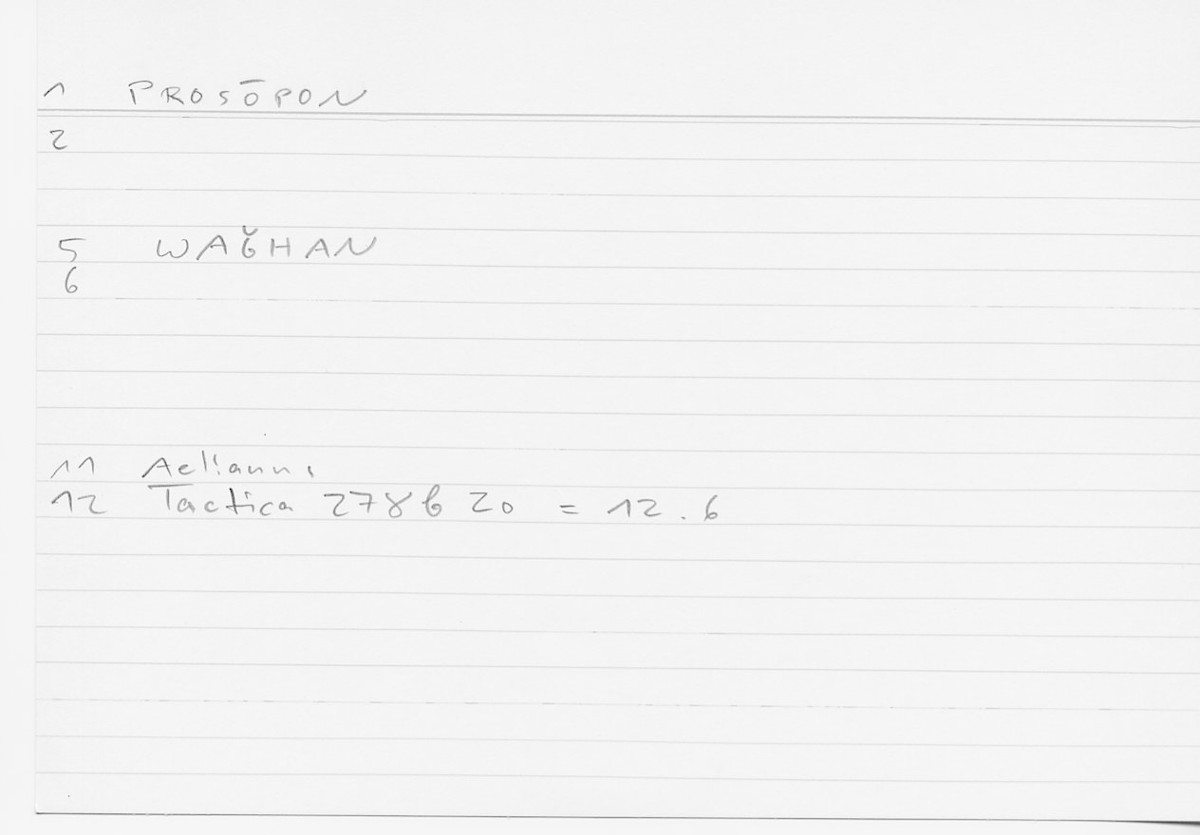 1 PROSŌPON
2
5 WAĞHAN
6
11 Aelianus
12 Tactica 278b 20 = 12.6